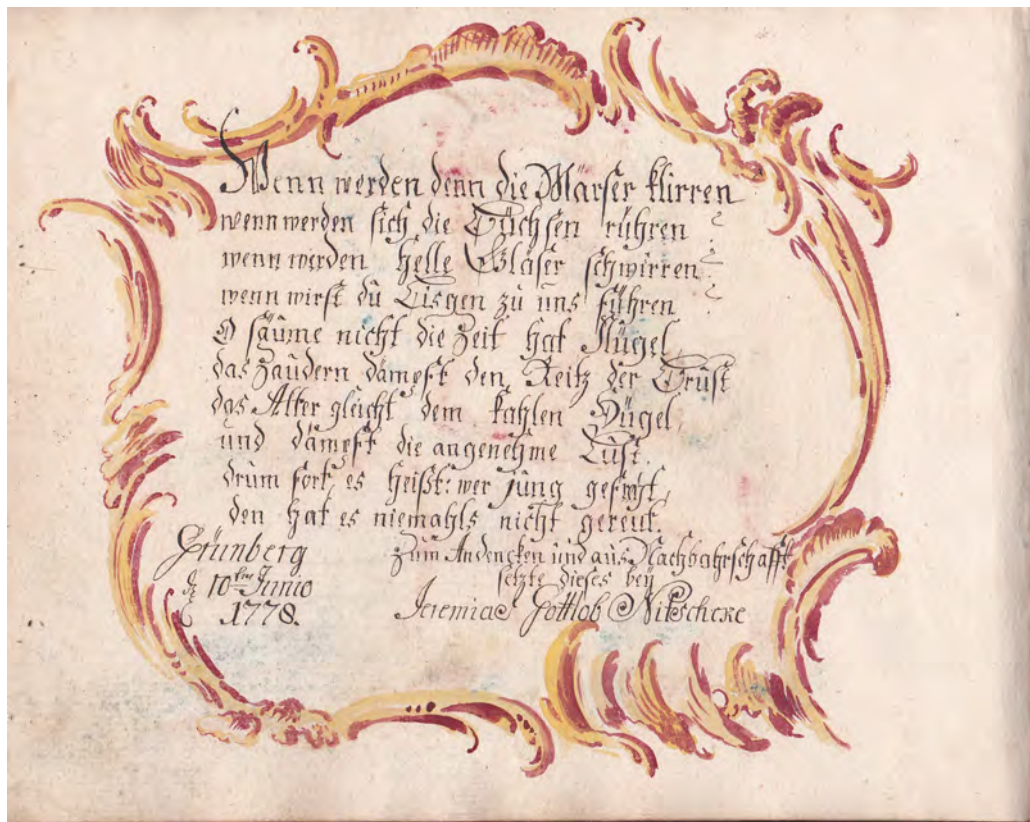 Wenn werden denn die Mörser klirren
wenn werden sich die Büchsen rühren
wenn werden helle Gläser schwirren?
wenn wirst du Lisgen zu uns führen?
O säume nicht die Zeit hat Flügel,
das Zaudern dämpft den Reitz der Brust
das Alter gleicht dem kahlen Hügel,
und dämpft die angenehme Lust.
drum fort es heißt: wer jung gefreyt,
den hat es niemahls nicht gereut.
Grünberg
Zum Andencken und aus Nachbahrschafft
d 10ten Junio
setzte dieses bey
1778.
Jeremias Gottlob Nitschcke